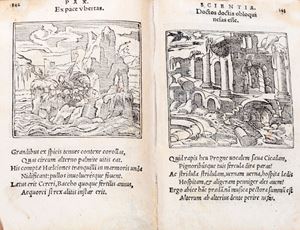 P A X.
Ex pace vbertas.
Grandibus ex spicis tenues contexe corollas,
Quas circum alterno palmite vitis eat.
His comptæ Halcyones tranquilli in marmoris unda
Nidificant, pullos inuolucresque fouent.
Lætus erit Cereri, Baccho quoque fertilis annus,
Aequorei si rex alitis instar erit.
SCIENTIA.
Doctos doctis obloqui
nefas esse.
Quid rapis heu Progne uocalem sæua Cicadam,
Pignoribusque tuis fercula dira paras?
Ac stridula stridulam, uernam uerna, hospita lædis
Hospitam, & aligeram penniger ales auem?
Ergo abice hanc prædam nã musica pectora summũ est
Alterum ab alterius dente perire nefas.